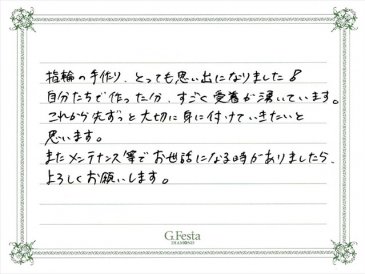 指輪の手作り、とっても思い出になりました♪
自分たちで作った分、すごく愛着が湧いています。
これから先ずっと大切に身に付けていきたいと
思います。
またメンテナンス等でお世話になる時がありましたら、
よろしくお願いします。
G.Festa
DIAMOND